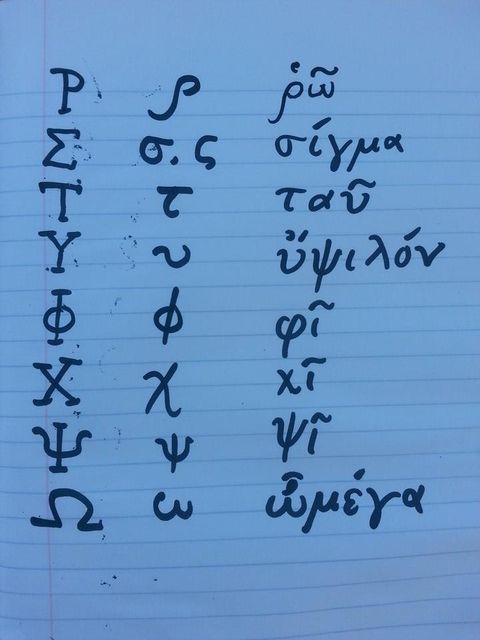 Ρ ρ ῥῶ
Σ σ. ς σίγμα
Τ τ ταῦ
Υ υ ὔψιλόν
Φ ϕ φῖ
Χ χ χῖ
Ψ ψ ψῖ
Ω ω ὦμέγα